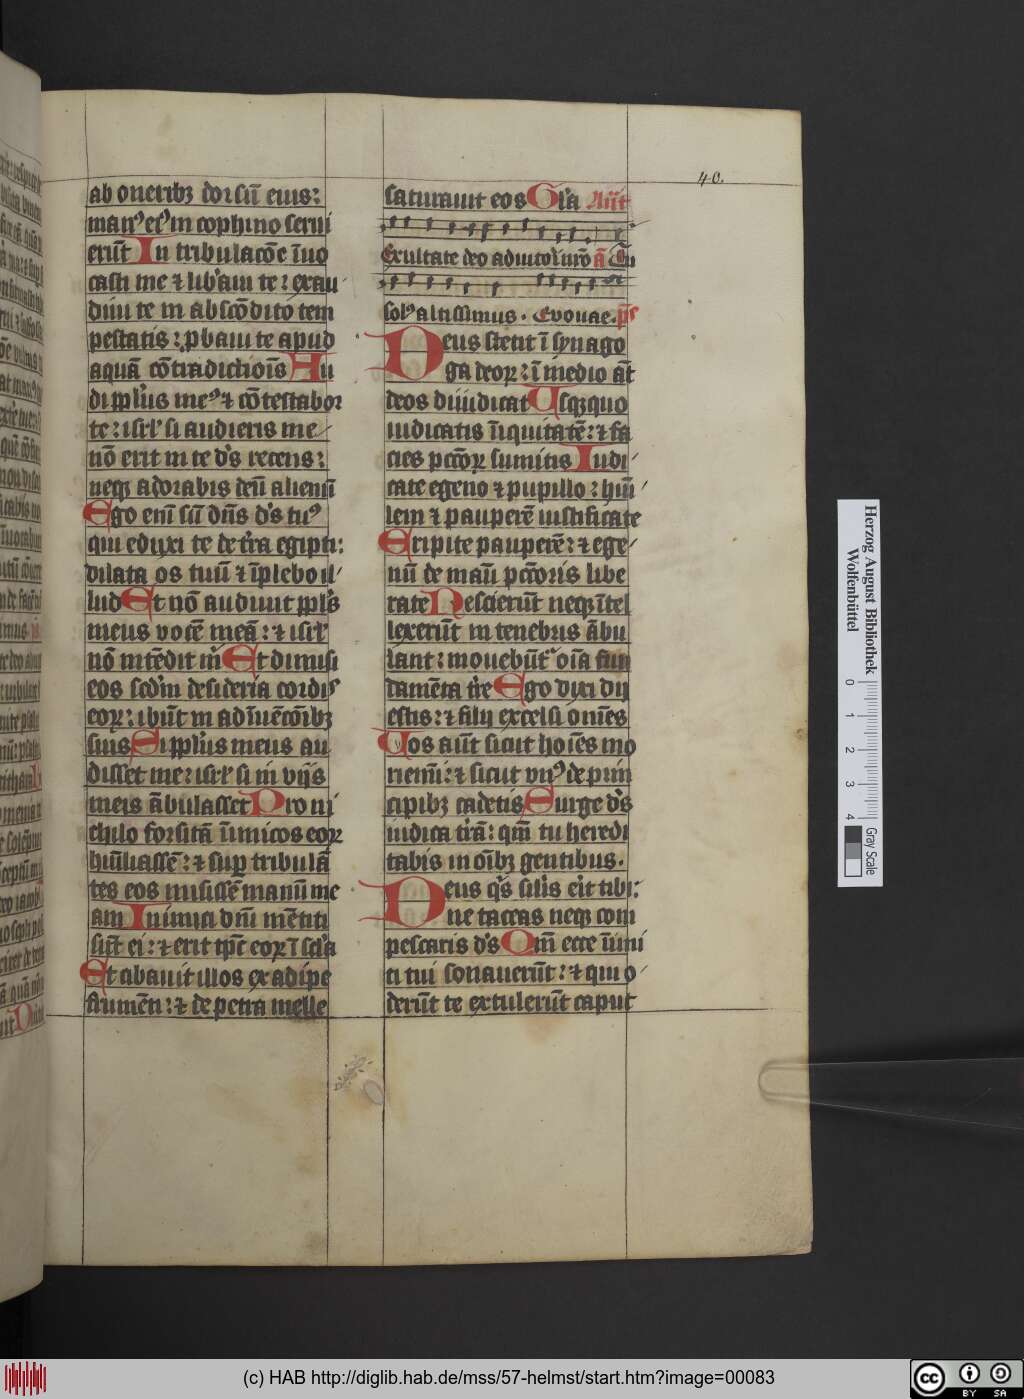 40.
ab oneribꝫ dorsū eius:
manꝰ eiꝰ in cophino serui
erūt In tribulacōe īuo
casti me ⁊ lib̾aui te: exau
diui te in abscōdito tem
pestatis: ꝓbaui te apud
aquā cōtradictiois̄ Au
di pplu̾s meꝰ ⁊ cōtestabor
te: isrl̾ si audieris me
nō erit in te d̾s recens:
neqꝫ adorabis deū alienū
Ego em̄ sū dn̄s d̾s tuꝰ
qui eduxi te de t̾ra egipti:
dilata os tuū ⁊ īplebo il
lud Et nō audiuit ppl̾s
meus vocē meā: ⁊ isrl̾
nō intēdit m̄ Et dimisi
eos scd̾m desideria cordis
eoꝝ: ibūt in adīuēcōibꝫ
suis Si pplu̾s meus au
disset me: isrl̾ si in vijs
meis ābulasset Pro ni
chilo forsitā īimicos eoꝝ
hūiliassē: ⁊ suꝑ tribulā
tes eos misissē manū me
am Inimici dn̄i mētiti
sūt ei: ⁊ erit tp̄s eoꝝ ī scl̾a
Et cibauit illos ex adipe
frumēti: ⁊ de petra melle
saturauit eos Gl̾a Ant̄
Exultate deo adiutori nr̄o ā Tu
solꝰ altissimus. Evovae. p̄s
Deus stetit ī synago
ga deoꝝ: ī medio aūt
deos diiudicat Usqꝫquo
iudicatis īiquitatē: ⁊ fa
cies pctōꝝ sumitis Iudi
cate egeno ⁊ pupillo: hūi
lem ⁊ pauperē iustificate
Eripite pauperē: ⁊ ege
nū de manū pctōris libe
rate Nescierūt neqꝫ ītel
lexerūt in tenebris ābu
lant: mouebūt̾ oīa fun
damēta tr̄e Ego dixi dij
estis: ⁊ filij excelsi omēs
Uos aūt sicut hoīes mo
riemī: ⁊ sicut vnꝰ de prin
cipibꝫ cadetis Surge d̾s
iudica tr̄ā: qm̄ tu heredi
tabis in oībꝫ gentibus.
Deus q̾s sil̾is erit tibi:
ne taceas neqꝫ com
pescaris d̾s Qm̄ ecce īimi
ci tui sonauerūt: ⁊ qui o
derūt te extulerūt caput
Herzog August Bibliothek
Wolfenbüttel
0 1 2 3 4
Gray Scale
(c) HAB http://diglib.hab.de/mss/57-helmst/start.htm?image=00083
cc BY SA